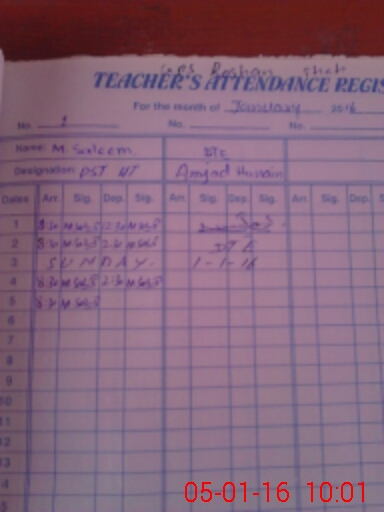 GPS Roshan shah
TEACHER'S ATTENDANCE REGIS
For the month of January 2016
No. 1 No. No.
Name: M. Saleem. DTE
Designation: PST HT Amjad Hussain
Dates Arr. Sig. Dep. Sig. Arr. Sig. Dep. Sig. Arr. Sig. Dep. S
1 8:30 12:30
2 8:30 2:30 DTE
3 SUNDAY. 1-1-16
4 8:30 2:30
5 8:30
6
7
8
9
10
11
12
13
14
05-01-16 10:01